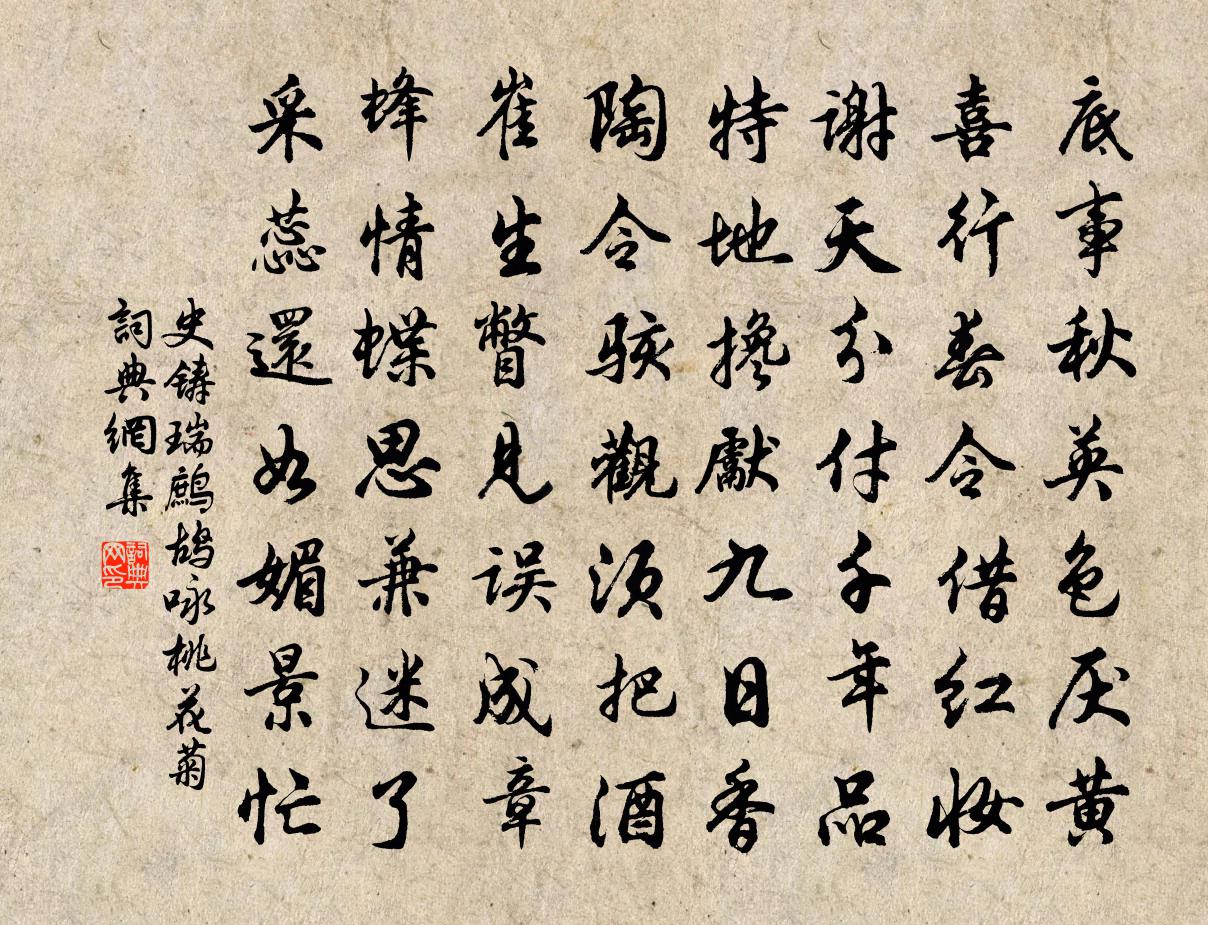 底事秋英色厌黄
喜行春令借红妆
谢天分付千年品
特地搀獻九日香
陶令骇觀须把酒
崔生瞥见误成章
蜂情蝶思兼迷了
采蕊還如媚景忙
史鑄瑞鷓鴣咏桃花菊
詞典網集
詞典网印